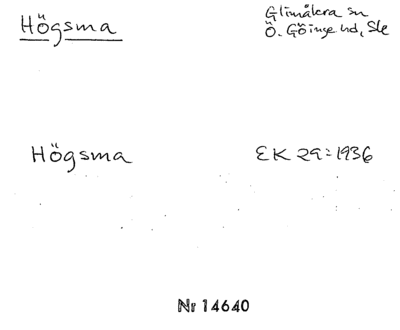 Högsma
Glimåkra sn
Ö. Göinge hd, Sle
Högsma
EK 29:1936
Nr 14640